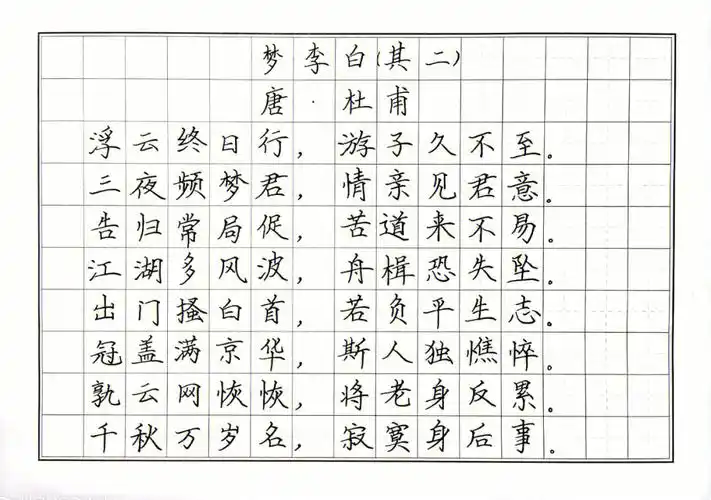 梦李白(其二)
唐·杜甫
浮云终日行，游子久不至。
三夜频梦君，情亲见君意。
告归常局促，苦道来不易。
江湖多风波，舟楫恐失坠。
出门搔白首，若负平生志。
冠盖满京华，斯人独憔悴。
孰云网恢恢，将老身反累。
千秋万岁名，寂寞身后事。